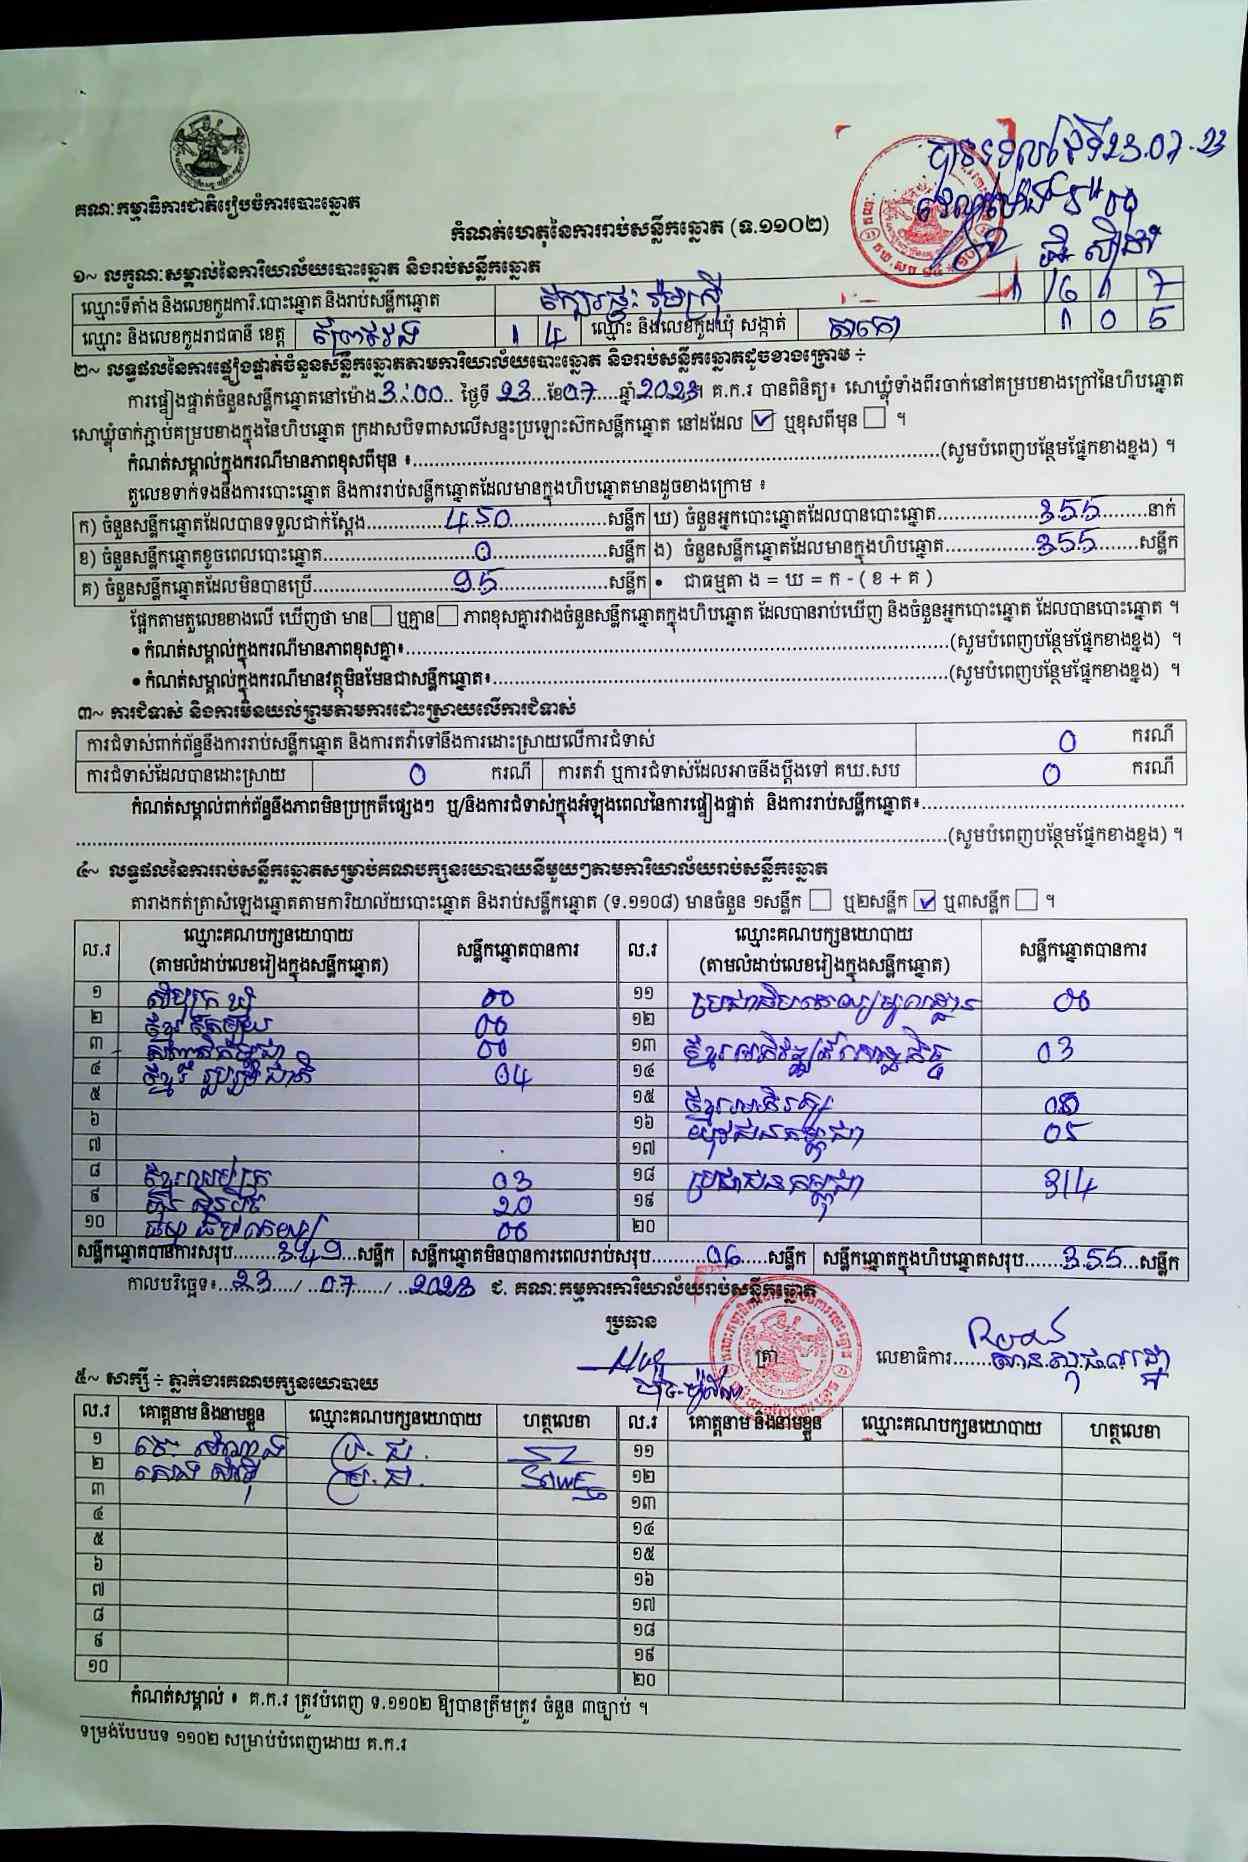 គណៈកម្មាធិការជាតិរៀបចំការបោះឆ្នោត
កំណត់ហេតុនៃការរាប់សន្លឹកឆ្នោត (ទ.១១០២)
១~ លក្ខណៈសម្គាល់នៃការិយាល័យបោះឆ្នោត និងរាប់សន្លឹកឆ្នោត
ឈ្មោះទីតាំង និងលេខកូដការិ.បោះឆ្នោត និងរាប់សន្លឹកឆ្នោត
ឈ្មោះ និងលេខកូដរាជធានី ខេត្ត ព្រៃវែង 1 4 ឈ្មោះ និងលេខកូដឃុំ សង្កាត់ តាកោ 1 0 5
២~ លទ្ធផលនៃការផ្ទៀងផ្ទាត់ចំនួនសន្លឹកឆ្នោតតាមការិយាល័យបោះឆ្នោត និងរាប់សន្លឹកឆ្នោតដូចខាងក្រោម ÷
ការផ្ទៀងផ្ទាត់ចំនួនសន្លឹកឆ្នោតនៅម៉ោង 3:00 ថ្ងៃទី 23 ខែ 07 ឆ្នាំ 2023។ គ.ក.រ បានពិនិត្យ៖ សោឃ្លុំទាំងពីរចាក់នៅគម្របខាងក្រៅនៃហិបឆ្នោត
សោឃ្លុំចាក់ភ្ជាប់គម្របខាងក្នុងនៃហិបឆ្នោត ក្រដាសបិទពាសលើសន្ទះប្រឡោះស៊កសន្លឹកឆ្នោត នៅដដែល ☑ ឬខុសពីមុន ☐ ។
កំណត់សម្គាល់ក្នុងករណីមានភាពខុសពីមុន ៖ (សូមបំពេញបន្ថែមផ្នែកខាងខ្នង) ។
តួលេខទាក់ទងនឹងការបោះឆ្នោត និងការរាប់សន្លឹកឆ្នោតដែលមានក្នុងហិបឆ្នោតមានដូចខាងក្រោម ៖
ក) ចំនួនសន្លឹកឆ្នោតដែលបានទទួលជាក់ស្តែង 450 សន្លឹក ឃ) ចំនួនអ្នកបោះឆ្នោតដែលបានបោះឆ្នោត 355 នាក់
ខ) ចំនួនសន្លឹកឆ្នោតខូចពេលបោះឆ្នោត 0 សន្លឹក ង) ចំនួនសន្លឹកឆ្នោតដែលមានក្នុងហិបឆ្នោត 355 សន្លឹក
គ) ចំនួនសន្លឹកឆ្នោតដែលមិនបានប្រើ 95 សន្លឹក • ជាធម្មតា ង = ឃ = ក - ( ខ + គ )
ផ្អែកតាមតួលេខខាងលើ ឃើញថា មាន ☐ ឬគ្មាន ☐ ភាពខុសគ្នារវាងចំនួនសន្លឹកឆ្នោតក្នុងហិបឆ្នោត ដែលបានរាប់ឃើញ និងចំនួនអ្នកបោះឆ្នោត ដែលបានបោះឆ្នោត ។
• កំណត់សម្គាល់ក្នុងករណីមានភាពខុសគ្នា៖ (សូមបំពេញបន្ថែមផ្នែកខាងខ្នង) ។
• កំណត់សម្គាល់ក្នុងករណីមានវត្ថុមិនមែនជាសន្លឹកឆ្នោត៖ (សូមបំពេញបន្ថែមផ្នែកខាងខ្នង) ។
៣~ ការជំទាស់ និងការមិនយល់ព្រមតាមការដោះស្រាយលើការជំទាស់
ការជំទាស់ពាក់ព័ន្ធនឹងការរាប់សន្លឹកឆ្នោត និងការតវ៉ាទៅនឹងការដោះស្រាយលើការជំទាស់ 0 ករណី
ការជំទាស់ដែលបានដោះស្រាយ 0 ករណី ការតវ៉ា ឬការជំទាស់ដែលអាចនឹងប្តឹងទៅ គឃ.សប 0 ករណី
កំណត់សម្គាល់ពាក់ព័ន្ធនឹងភាពមិនប្រក្រតីផ្សេងៗ ឬ/និងការជំទាស់ក្នុងអំឡុងពេលនៃការផ្ទៀងផ្ទាត់ និងការរាប់សន្លឹកឆ្នោត៖
(សូមបំពេញបន្ថែមផ្នែកខាងខ្នង) ។
៤~ លទ្ធផលនៃការរាប់សន្លឹកឆ្នោតសម្រាប់គណបក្សនយោបាយនីមួយៗតាមការិយាល័យរាប់សន្លឹកឆ្នោត
តារាងកត់ត្រាសំឡេងឆ្នោតតាមការិយាល័យបោះឆ្នោត និងរាប់សន្លឹកឆ្នោត (ទ.១១០៨) មានចំនួន ១សន្លឹក ☐ ឬ២សន្លឹក ☑ ឬ៣សន្លឹក ☐ ។
ល.រ ឈ្មោះគណបក្សនយោបាយ (តាមលំដាប់លេខរៀងក្នុងសន្លឹកឆ្នោត) សន្លឹកឆ្នោតបានការ ល.រ ឈ្មោះគណបក្សនយោបាយ (តាមលំដាប់លេខរៀងក្នុងសន្លឹកឆ្នោត) សន្លឹកឆ្នោតបានការ
១ 00 ១១ 00
២ 00 ១២
៣ 00 ១៣ 03
៤ ខ្មែររួបរួមជាតិ 04 ១៤
៥ ១៥ 00
៦ ១៦ យុវជនកម្ពុជា 05
៧ ១៧
៨ 03 ១៨ ប្រជាជនកម្ពុជា 314
៩ ហ្វ៊ុនស៊ិនប៉ិច 20 ១៩
១០ 00 ២០
សន្លឹកឆ្នោតបានការសរុប 349 សន្លឹក សន្លឹកឆ្នោតមិនបានការពេលរាប់សរុប 06 សន្លឹក សន្លឹកឆ្នោតក្នុងហិបឆ្នោតសរុប 355 សន្លឹក
កាលបរិច្ឆេទ៖ 23 / 07 / 2023 ជ. គណៈកម្មការការិយាល័យរាប់សន្លឹកឆ្នោត
ប្រធាន
ត្រា លេខាធិការ
៥~ សាក្សី ÷ ភ្នាក់ងារគណបក្សនយោបាយ
ល.រ គោត្តនាម និងនាមខ្លួន ឈ្មោះគណបក្សនយោបាយ ហត្ថលេខា ល.រ គោត្តនាម និងនាមខ្លួន ឈ្មោះគណបក្សនយោបាយ ហត្ថលេខា
១ ប្រ.ជ. ១១
២ ប្រ.ជ. ១២
៣ ១៣
៤ ១៤
៥ ១៥
៦ ១៦
៧ ១៧
៨ ១៨
៩ ១៩
១០ ២០
កំណត់សម្គាល់ ៖ គ.ក.រ ត្រូវបំពេញ ទ.១១០២ ឱ្យបានត្រឹមត្រូវ ចំនួន ៣ច្បាប់ ។
ទម្រង់បែបបទ ១១០២ សម្រាប់បំពេញដោយ គ.ក.រ